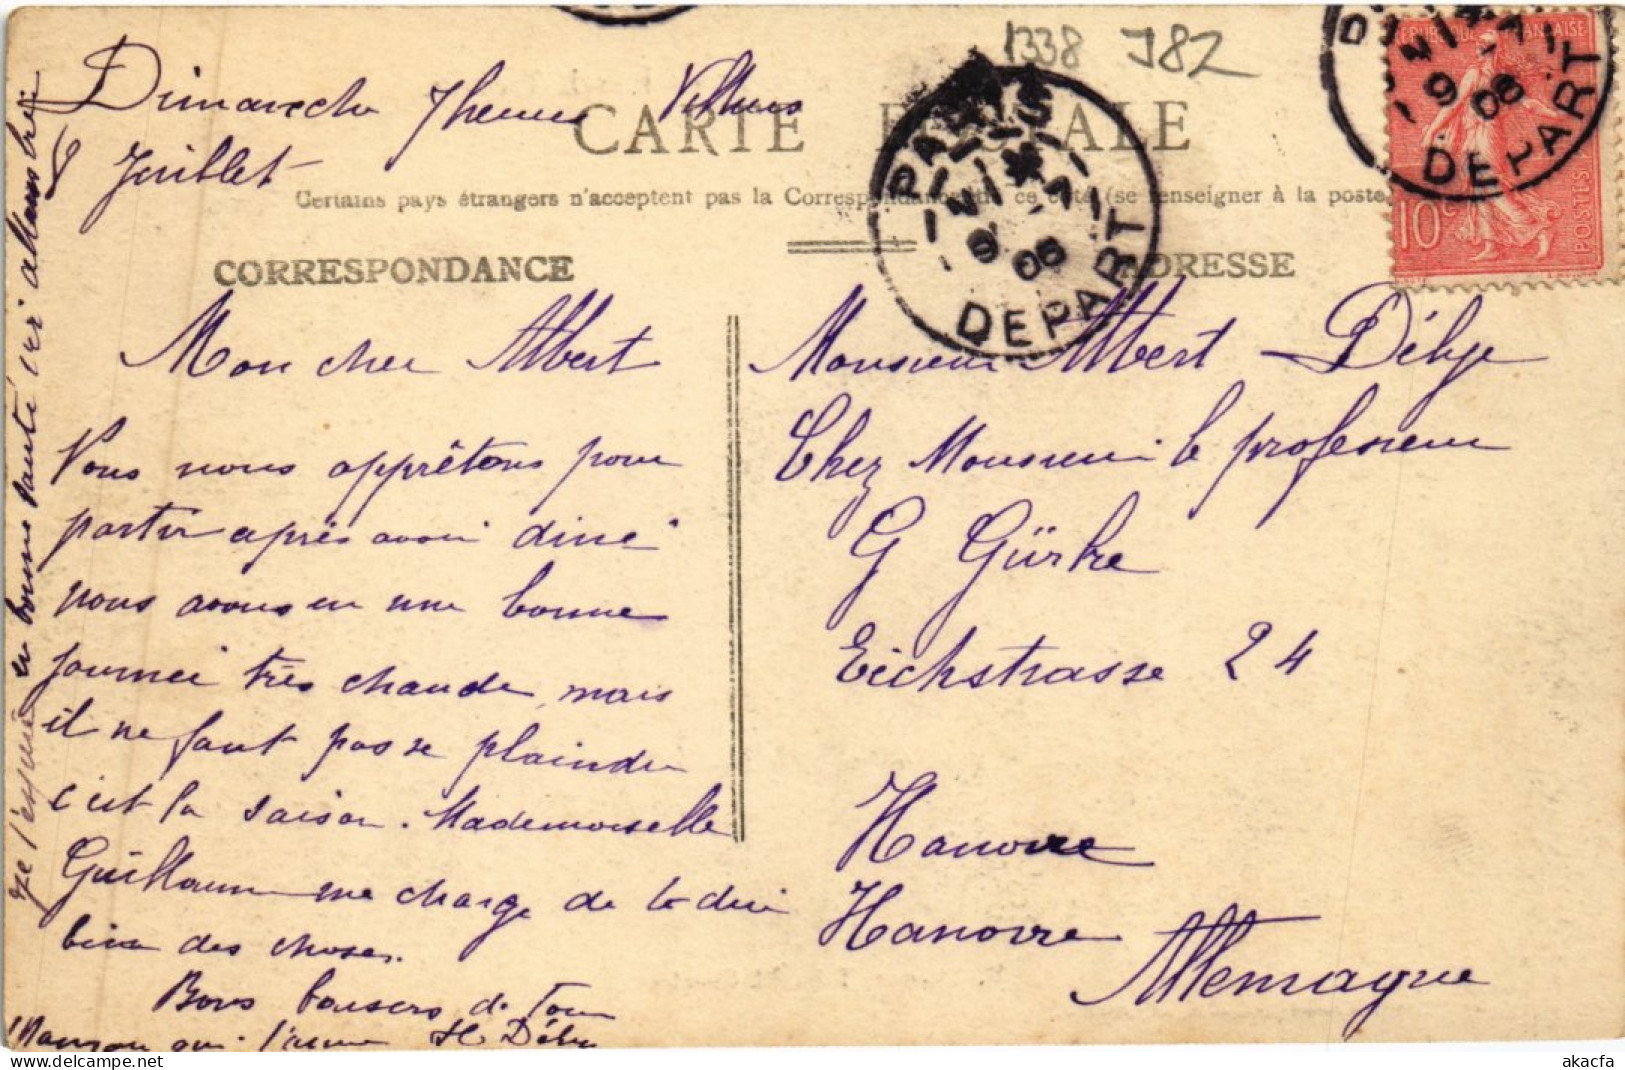 1338 J82
Dimanche 7 heures Villers
8 Juillet
CARTE POSTALE
Certains pays étrangers n'acceptent pas la Correspondance de ce côté (se renseigner à la poste
CORRESPONDANCE
Mon cher Albert
Nous nous apprêtons pour
partir après avoir diné
nous avons eu une bonne
journée très chaude, mais
il ne faut pas se plaindre
c'est la saison. Mademoiselle
Guillaume me charge de te dire
bien des choses.
Bons baisers de Ton
Maman qui t'aime
en bonne santé ici allons bien
ADRESSE
Monsieur Albert
Chez Monsieur le professeur
G Gürke
Eichstrasse 24
Hanovre
Hanovre
Allemagne
PARIS
9 - 7
06
DEPART
RÉPUBLIQUE FRANÇAISE
10c
POSTES
9
06
DEPART
akacfa